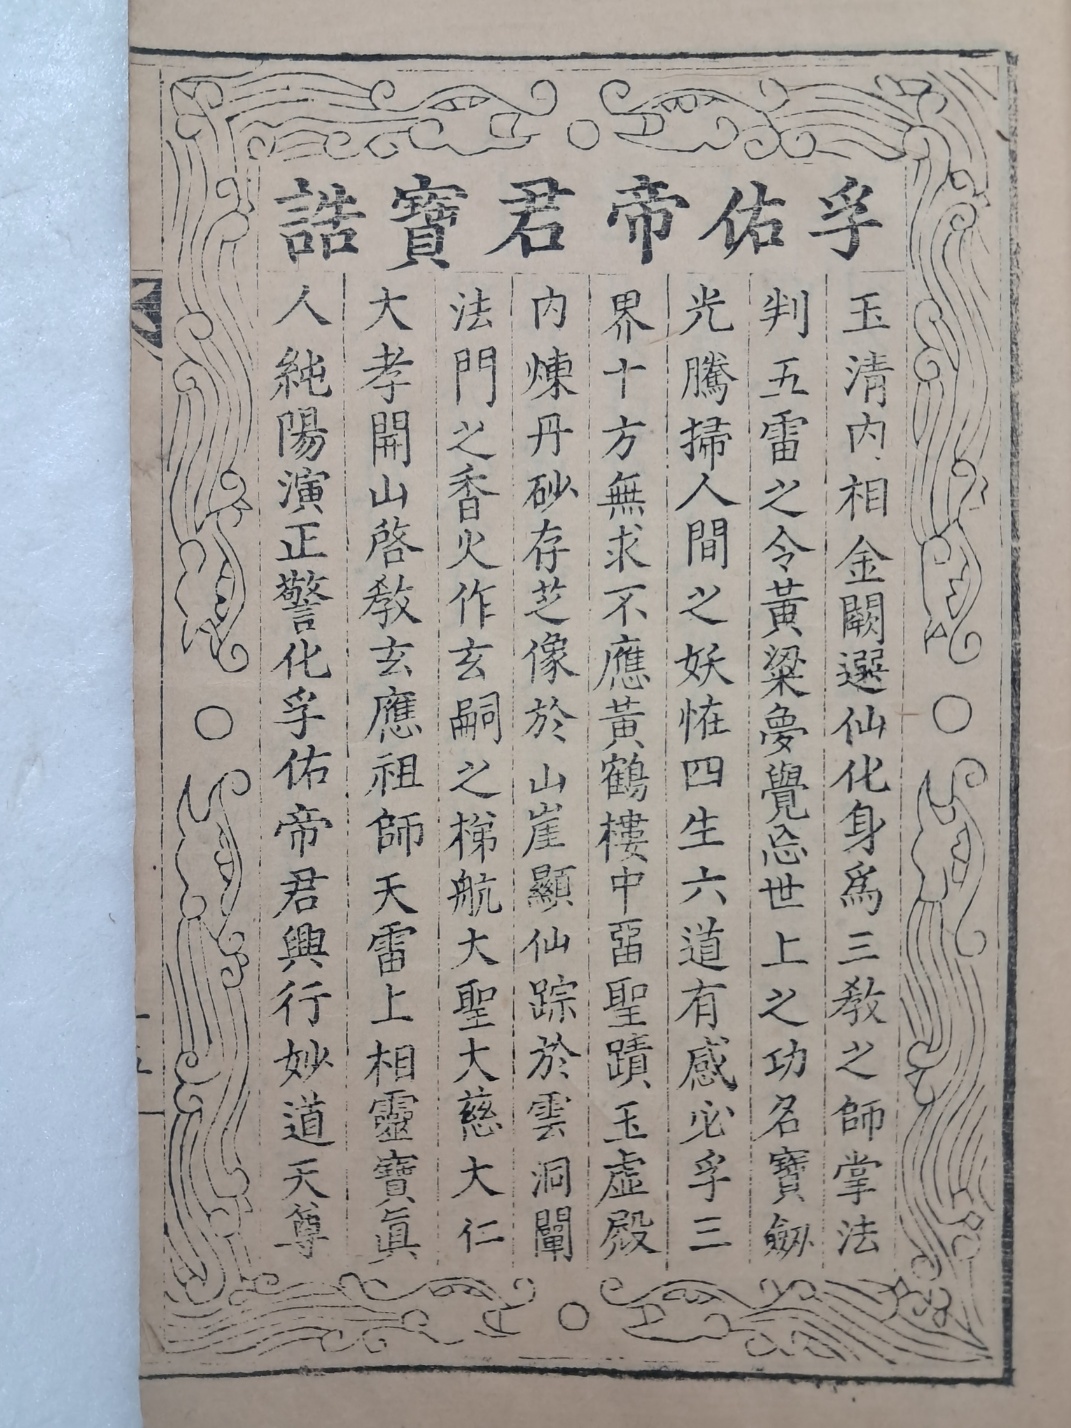 孚佑帝君寶誥
玉清内相金闕選仙化身爲三教之師掌法
判五雷之令黃粱夢覺忘世上之功名寶劔
光騰掃人間之妖恠四生六道有感必孚三
界十方無求不應黃鶴樓中畱聖蹟玉虛殿
内煉丹砂存芝像於山崖顯仙踪於雲洞闡
法門之香火作玄嗣之梯航大聖大慈大仁
大孝開山啓教玄應祖師天雷上相靈寶眞
人純陽演正警化孚佑帝君興行妙道天尊